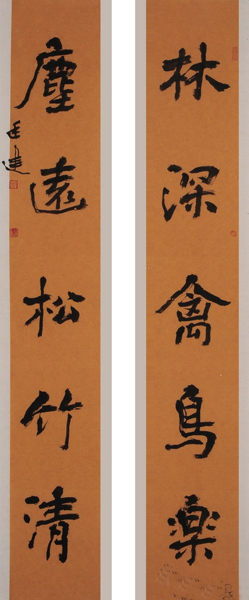 林深禽鳥樂
塵遠松竹清